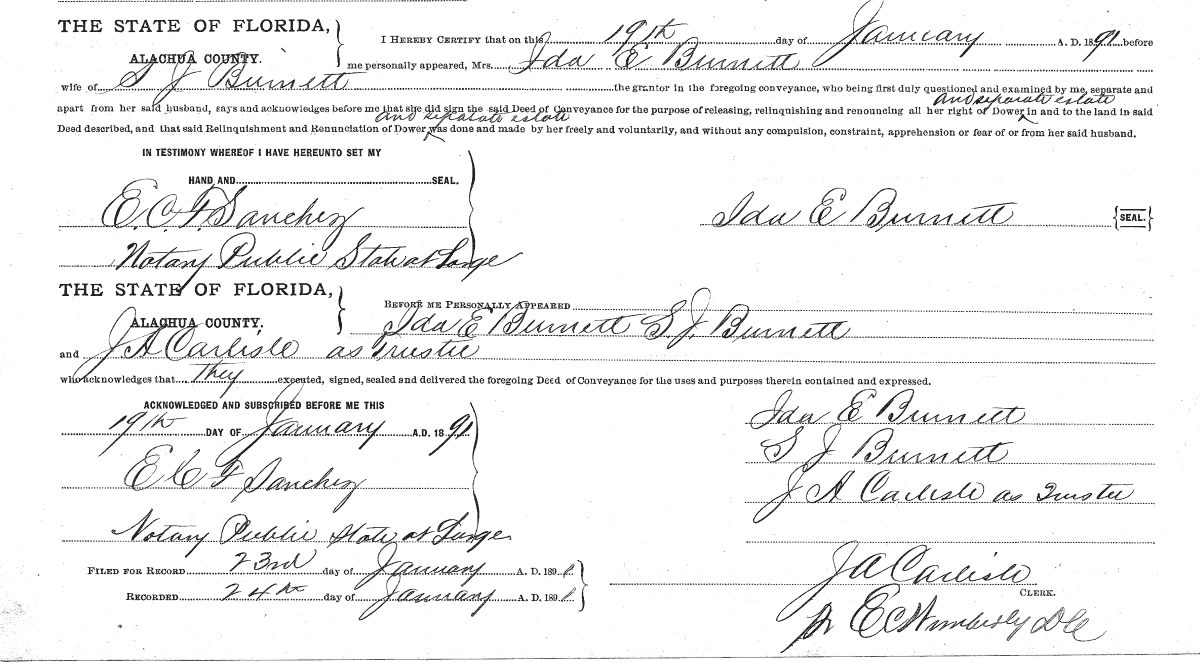 THE STATE OF FLORIDA,
ALACHUA COUNTY.
I HEREBY CERTIFY that on this 19th day of January A. D. 1891, before
me personally appeared, Mrs. Ida E Burnett
wife of S J Burnett the grantor in the foregoing conveyance, who being first duly questioned and examined by me, separate and
and separate estate
apart from her said husband, says and acknowledges before me that she did sign the said Deed of Conveyance for the purpose of releasing, relinquishing and renouncing all her right of Dower in and to the land in said
and separate estate
Deed described, and that said Relinquishment and Renunciation of Dower was done and made by her freely and voluntarily, and without any compulsion, constraint, apprehension or fear of or from her said husband.
IN TESTIMONY WHEREOF I HAVE HEREUNTO SET MY
HAND AND SEAL.
E. C. F. Sanchez
Notary Public State at Large
Ida E Burnett {SEAL.}
THE STATE OF FLORIDA,
ALACHUA COUNTY,
BEFORE ME PERSONALLY APPEARED
Ida E Burnett S. J. Burnett
and J A Carlisle as Trustee
who acknowledges that they executed, signed, sealed and delivered the foregoing Deed of Conveyance for the uses and purposes therein contained and expressed.
ACKNOWLEDGED AND SUBSCRIBED BEFORE ME THIS
19th DAY OF January A.D. 1891
E C F Sanchez
Notary Public State at Large
Ida E Burnett
S J Burnett
J A Carlisle as Trustee
FILED FOR RECORD 23rd day of January A. D. 1891
RECORDED 24th day of January A. D. 1891
J A Carlisle
CLERK.
E C Wimberly D C